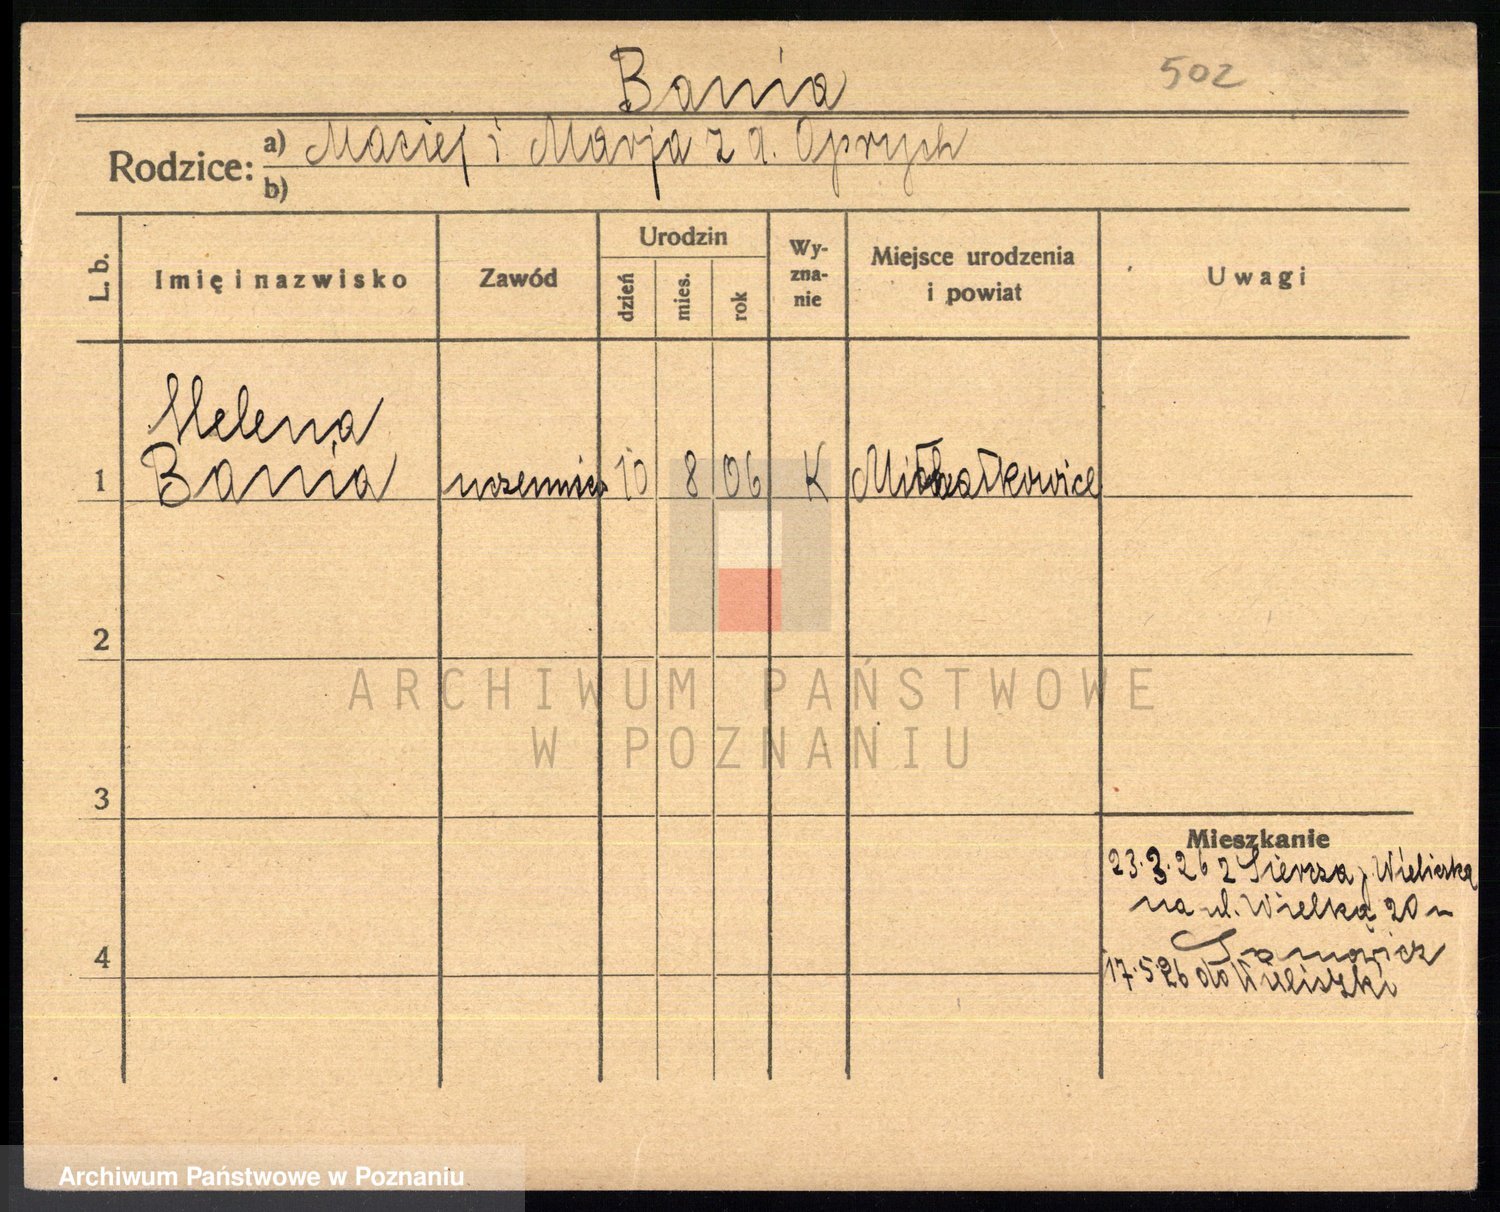 Bania
502
Rodzice: a) Maciej i Marja z d. Oprych
b)
L. b.
Imię i nazwisko
Zawód
Urodzin
dzień
mies.
rok
Wy-
zna-
nie
Miejsce urodzenia
i powiat
Uwagi
Helena
1 Bania uczennica 10 8 06 K Michałkowice
2
ARCHIWUM PAŃSTWOWE
W POZNANIU
3
Mieszkanie
23.3.26 z Siercza, Wieliczka
na ul. Wielką 20
4
17.5.26 do Wieliczki
Archiwum Państwowe w Poznaniu